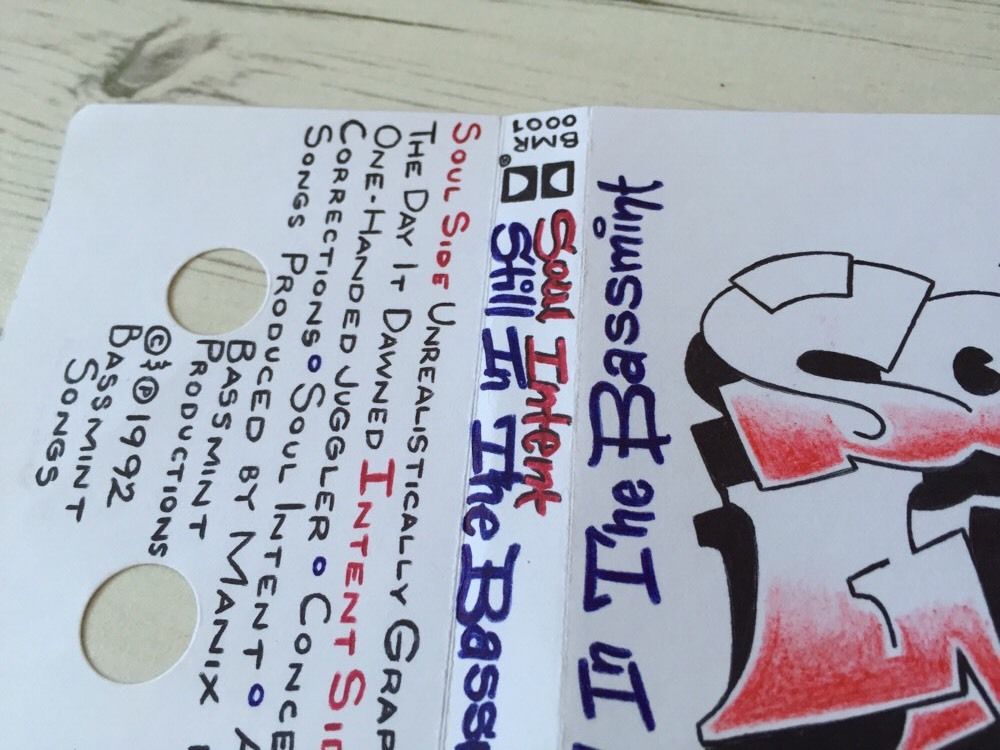 In The Bassmint
BMR
0001
Soul Intent
Still In The Bass
SOUL SIDE UNREALISTICALLY GRAP
THE DAY IT DAWNED INTENT SID
ONE-HANDED JUGGLER • CONCE
CORRECTIONS • SOUL INTENT • A
SONGS PRODUCED BY MANIX
BASSMINT
PRODUCTIONS
©&℗1992
BASSMINT
SONGS